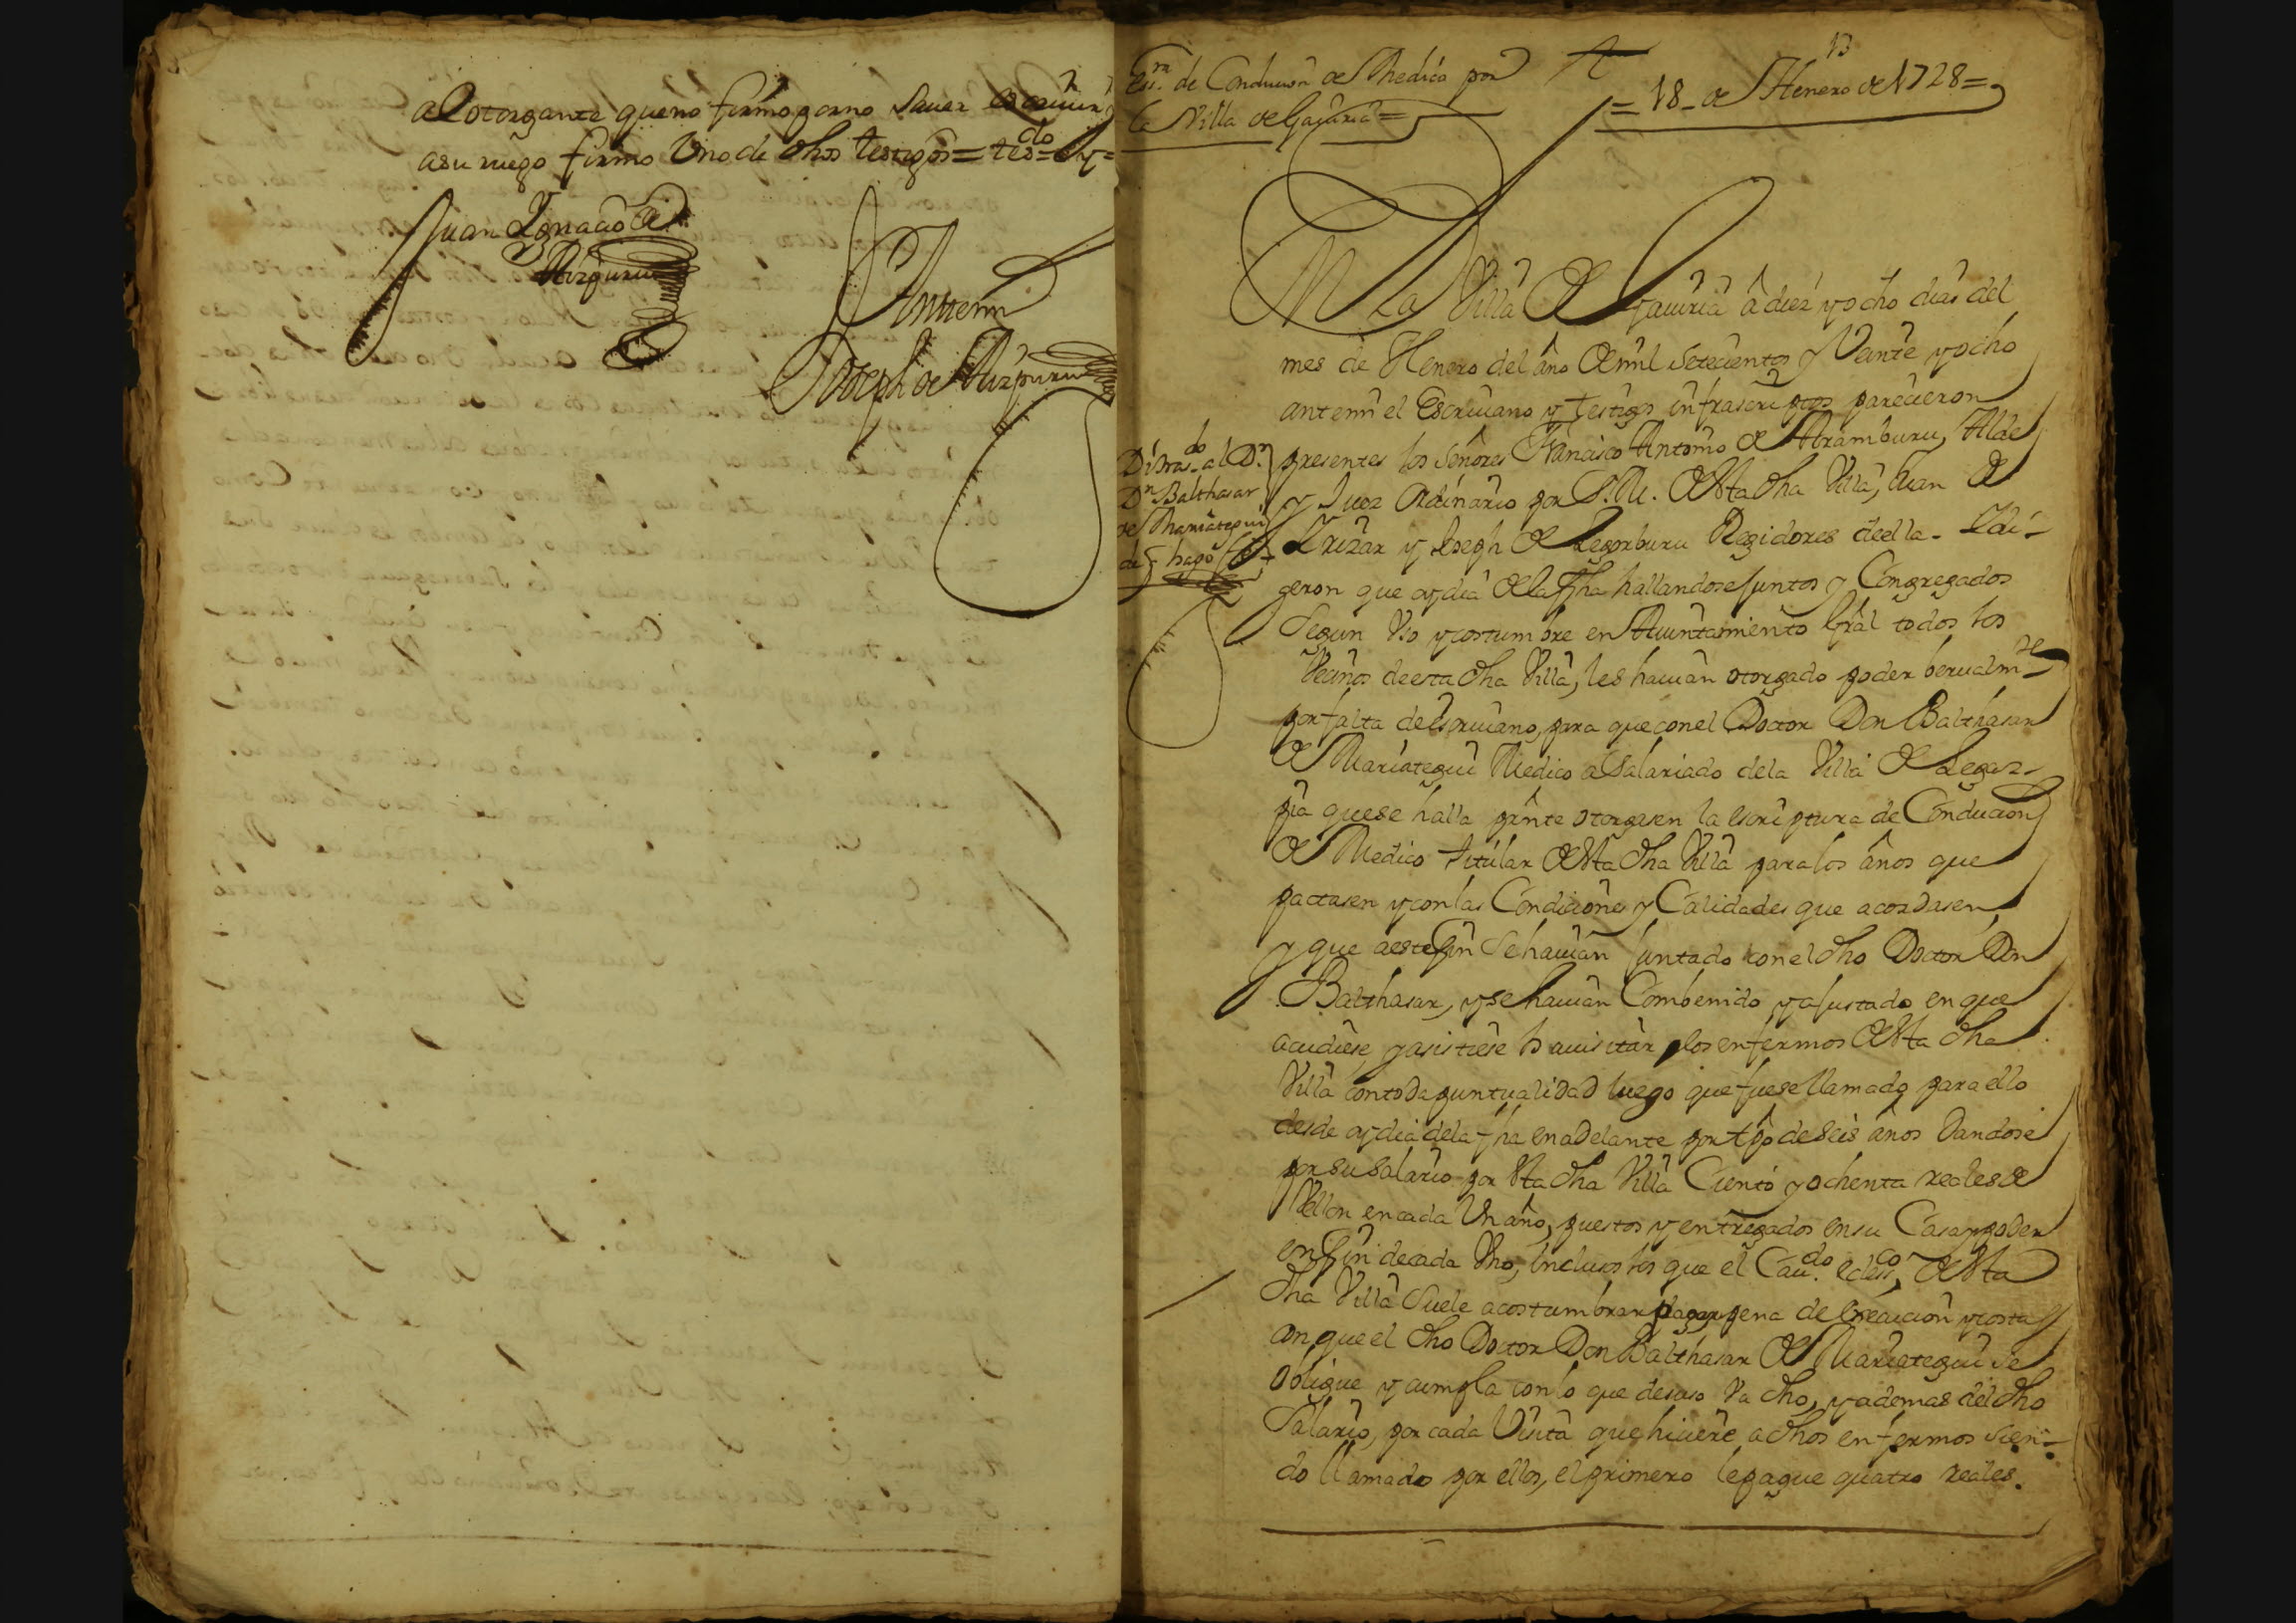 al otorgante que no firmo porno saver escriuir
asu ruego firmo Uno de dhos testigos = tesdo = y =
Juan Ygnacio de
Aizpuru
Antemi
Joseph de Aizpuru
13
Essra de Conducion de Medico por
la Villa de Gaviria =
= 18 - de Henero de 1728 =
En La Villa de Gauiria â diez y ocho dias del
mes de Henero del año de mil setecientos y Veinte y ocho
antemi el Escriuano y testigos infrascriptos parecieron
presentes los señores Francisco Antonio de Aramburu, Alde
y Juez Ordinario por S. M. de Sta dha Villa, Juan de
Irizar y Joseph de Legorburu Regidores deella - Y di-
geron que oy dia de la fha hallandose Juntos y Congregados
Segun Uso y costumbre en Aiuntamiento Gral todos los
Vecinos de esta dha Villa, les hauian otorgado poder berualmte
por falta de escriuano, para que con el Doctor Don Balthasar
de Mariategui Medico asalariado dela Villa de Legaz-
pia que se halla prnte otorgasen la escriptura de Conducion
de Medico titular de Sta dha Villa para los años que
pactasen y con las Condiciones y Calidades que acordasen,
y que a este fin Se hauian Juntado con el dho Doctor Don
Balthasar, y se hauian Combenido y ajustado en que
acudiese y asistiese hauisitar los enfermos de Sta dha
Villa contoda puntualidad luego que fuese llamado para ello
desde oy dia de la fha en adelante por tpo de seis años Dandose
por su salario por Sta dha Villa Ciento y ochenta reales de
Vellon encada Un año, puestos y entregados en su Casa y poder
en fin de cada Uno, Inclusos los que el Caudo ecless.co de Sta
dha Villa Suele acostumbrar pagar pena de execucion y costas
con que el dho Doctor Don Balthasar de Mariategui se
oblique y cumpla con lo que desuso Va dho, y ademas del dho
Salario, por cada Visita que hiciere a dhos enfermos sien-
do llamado por ellos, el primero le pague quatro reales.
Di tras.do al Dr
Dn Balthasar
de Mariategui